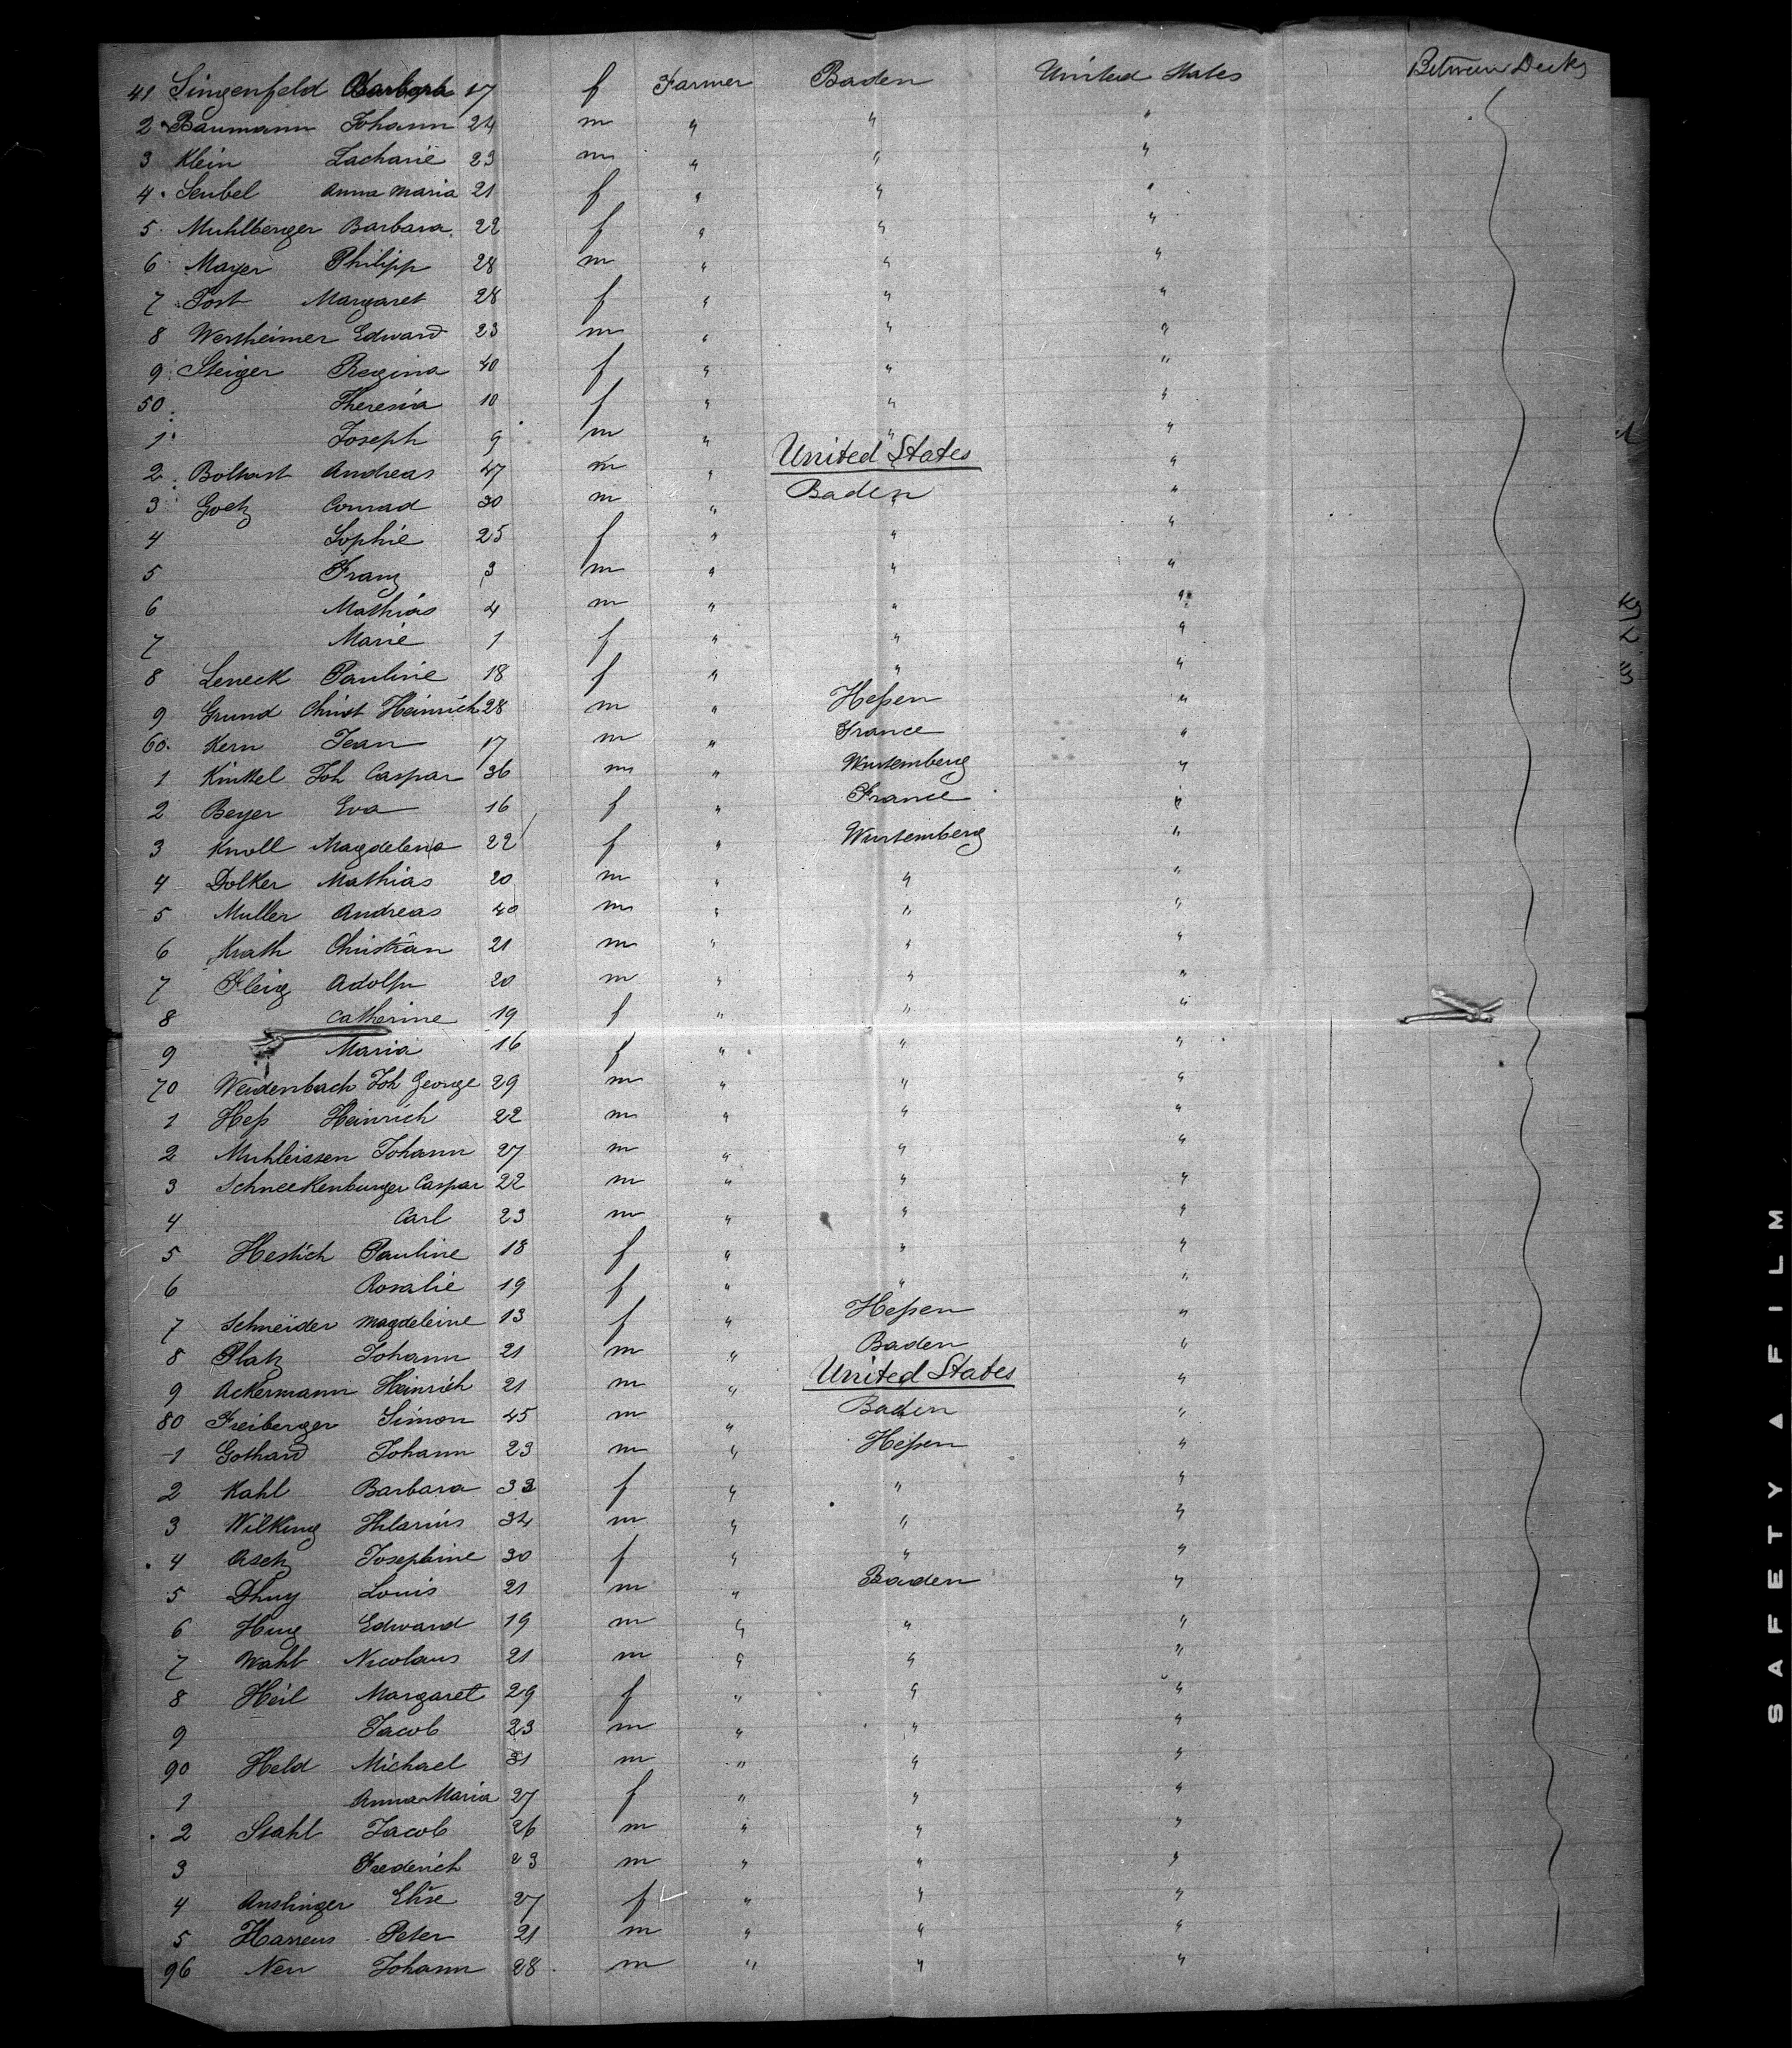 41 Singenfeld Barbara 17 f Farmer Baden United States Between Decks
2 Baumann Johann 24 m " " "
3 Klein Zacharie 23 m " " "
4 Seubel Anna Maria 21 f " " "
5 Muhlberger Barbara 22 f " " "
6 Mayer Philipp 28 m " " "
7 Jost Margaret 28 f " " "
8 Wertheimer Edward 23 m " " "
9 Steiger Regina 40 f " " "
50 Theresia 10 f " " "
1 Joseph 9 m " " "
2 Andreas 47 m " United States "
3 Goetz Conrad 30 m " Baden "
4 Sophie 25 f " " "
5 Franz 3 m " " "
6 Mathias 4 m " " "
7 Marie 1 f " " "
8 Leneck Pauline 18 f " " "
9 Grund Christ Heinrich 28 m " Heßen "
60 Kern Jean 17 m " France "
1 Kinkel Joh Caspar 36 m " Wurtemberg "
2 Beyer Eva 16 f " France "
3 Knoll Magdelena 22 f " Wurtemberg "
4 Dolker Mathias 20 m " " "
5 Muller Andreas 40 m " " "
6 Krath Christian 21 m " " "
7 Fleig Adolph 20 m " " "
8 Catherine 19 f " " "
9 Maria 16 f " " "
70 Weidenbach Joh George 29 m " " "
1 Heß Heinrich 22 m " " "
2 Muhleissen Johann 27 m " " "
3 Schneckenburger Caspar 22 m " " "
4 Carl 23 m " " "
5 Hestich Pauline 18 f " " "
6 Rosalie 19 f " " "
7 Schneider Magdeleine 13 f " Heßen "
8 Platz Johann 21 m " Baden "
9 Ackermann Heinrich 21 m " United States "
80 Freiberger Simon 45 m " Baden "
1 Gothard Johann 23 m " Heßen "
2 Kahl Barbara 33 f " " "
3 Wilking Hilarius 34 m " " "
4 Asch Josephine 30 f " " "
5 Dhuy Louis 21 m " Baden "
6 Hug Edward 19 m " " "
7 Wahl Nicolaus 21 m " " "
8 Heil Margaret 29 f " " "
9 Jacob 23 m " " "
90 Held Michael 31 m " " "
1 Anna Maria 27 f " " "
2 Stahl Jacob 26 m " " "
3 Frederich 23 m " " "
4 Anslinger Elise 27 f " " "
5 Harreus Peter 21 m " " "
96 Neu Johann 28 m " " "
SAFETY ▲ FILM